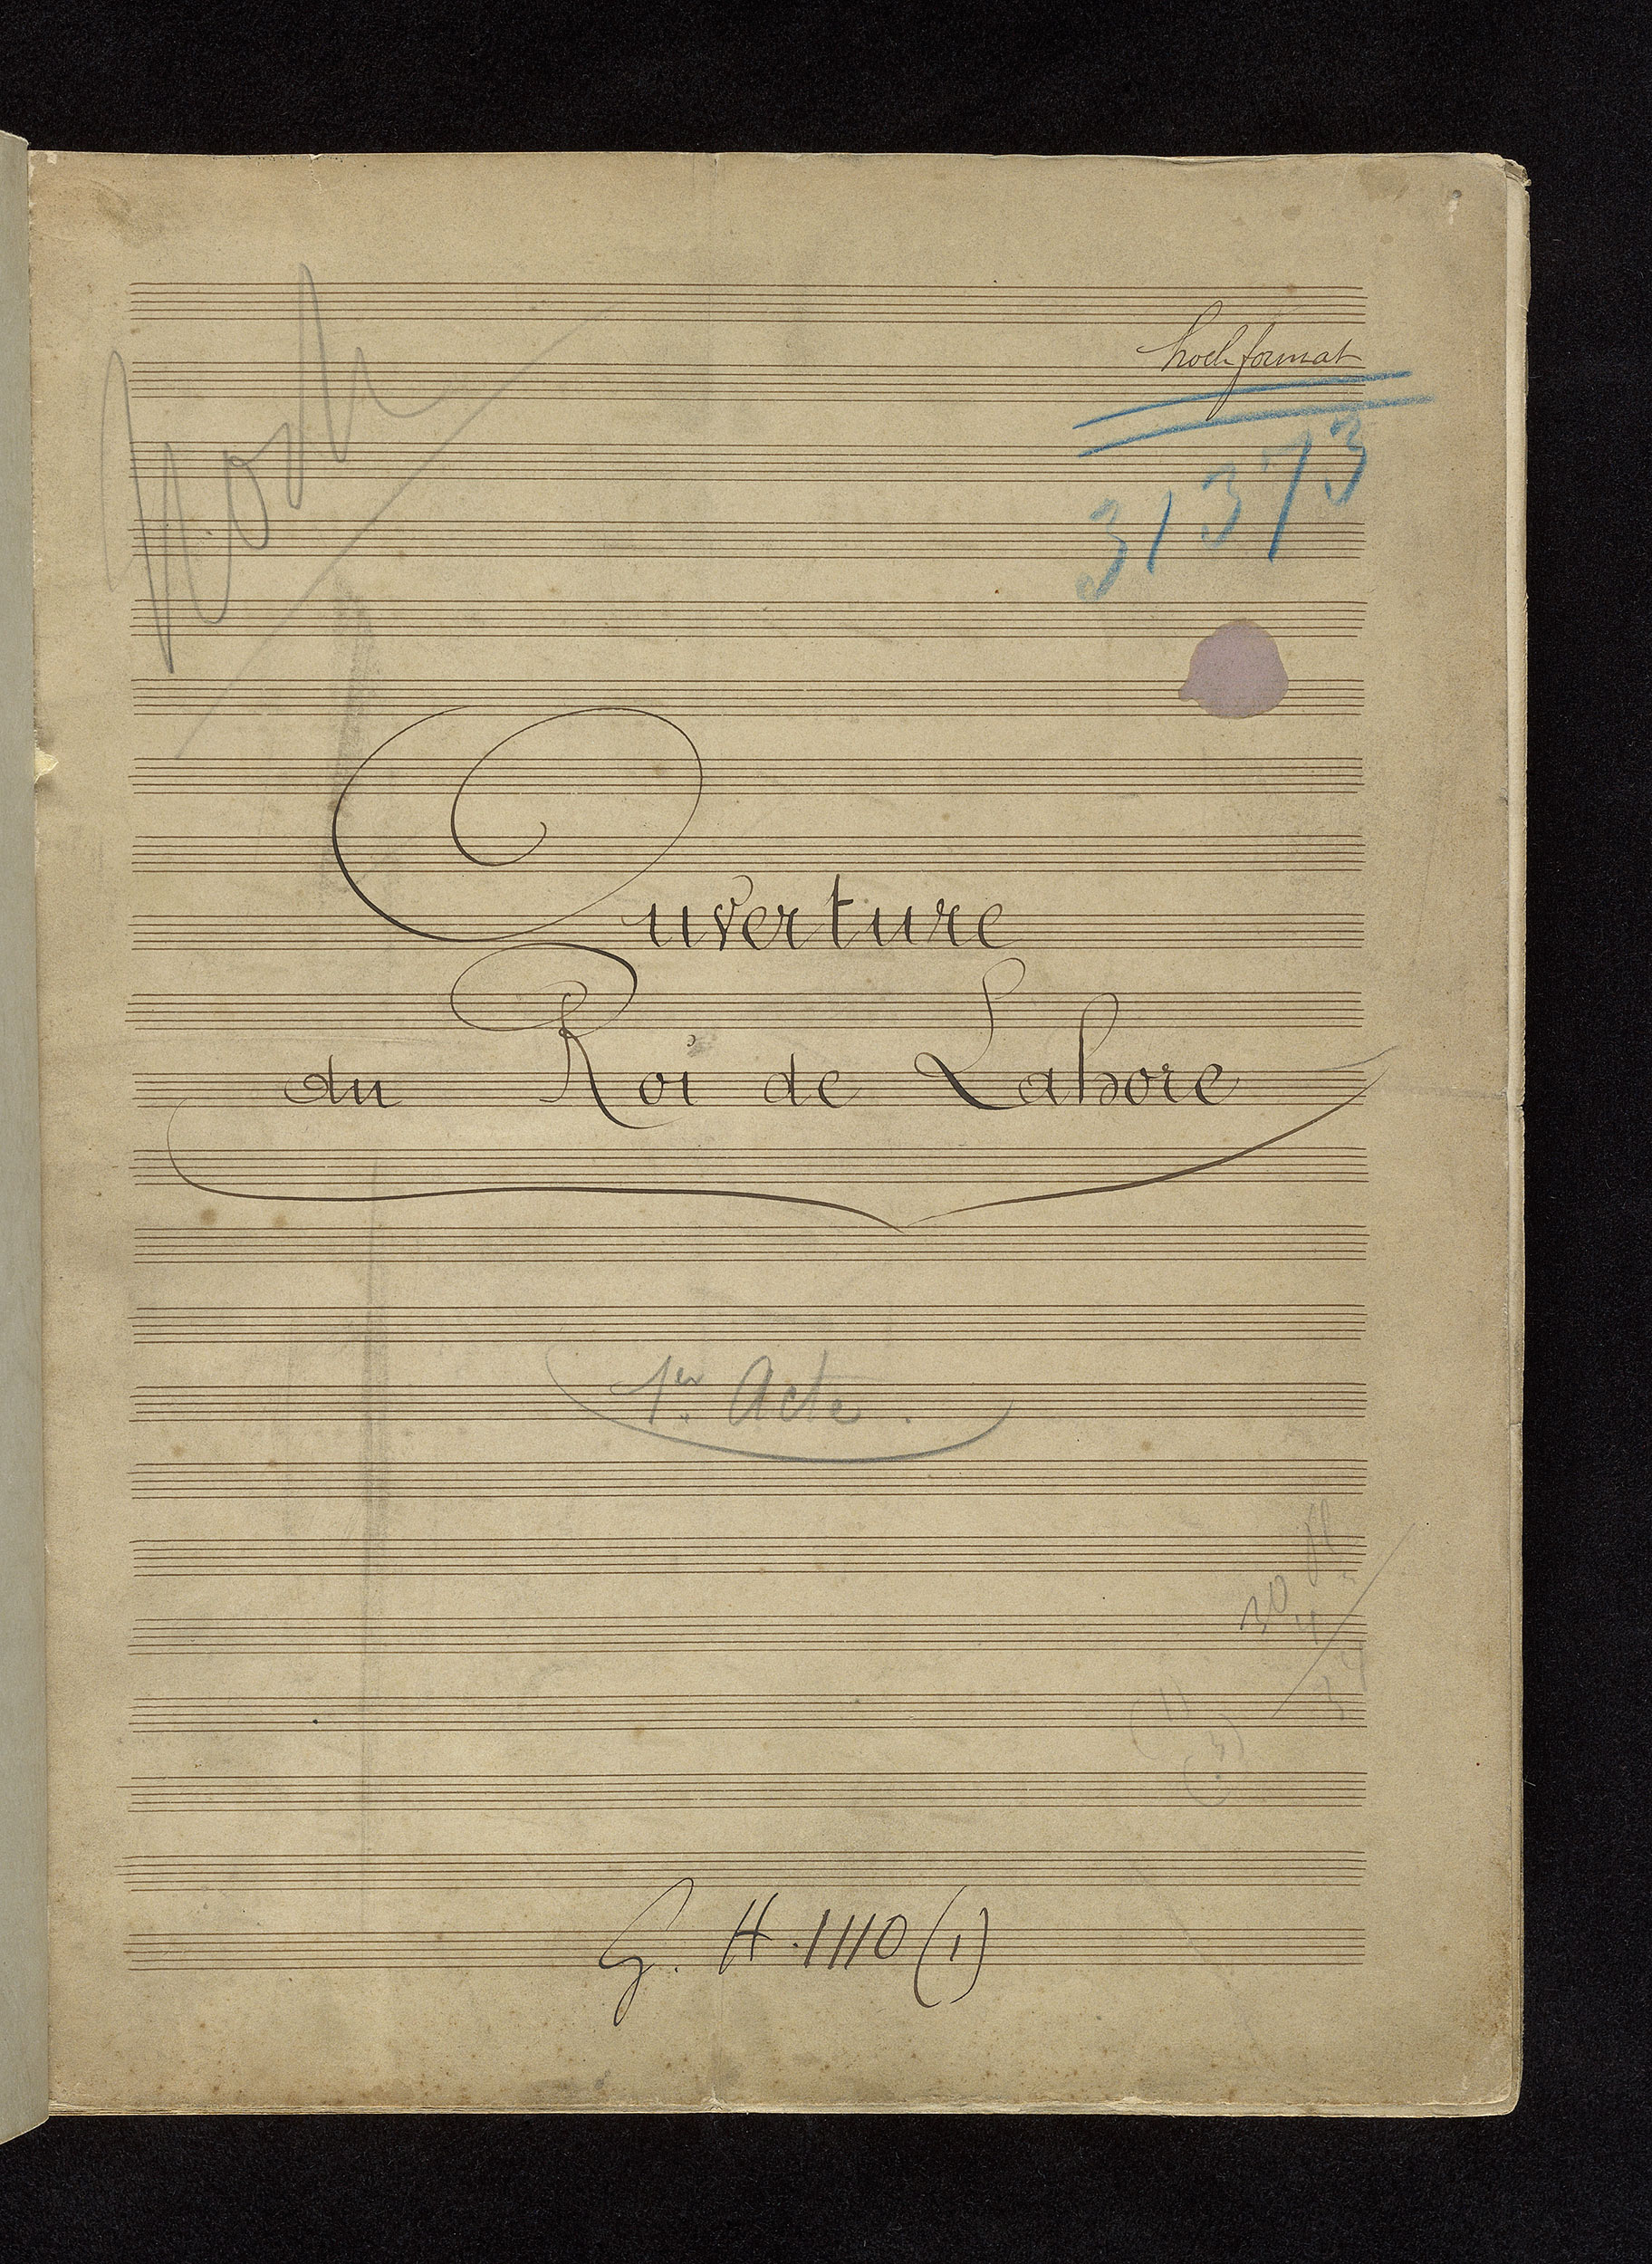 hochformat
31373
Ouverture
du Roi de Lahore
1er Acte.
30
G. H. 1110 (1)